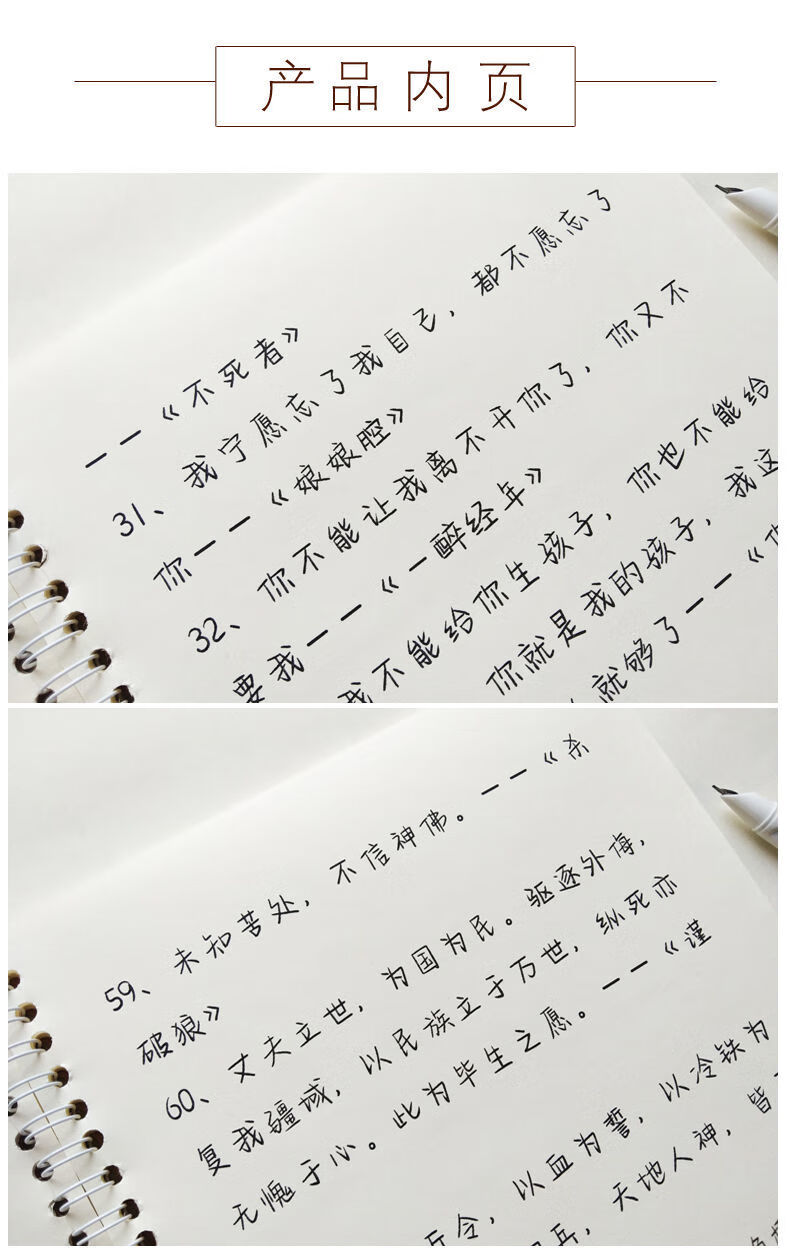 产品内页
——《不死者》
31、我宁愿忘了我自己，都不愿忘了
你——《娘娘腔》
32、你不能让我离不开你了，你又不
要我——《一醉经年》
我不能给你生孩子，你也不能给
你就是我的孩子，我这
就够了——《你
59、未知苦处，不信神佛。——《杀
破狼》
60、丈夫立世，为国为民。驱逐外侮，
复我疆域，以民族立于万世，纵死亦
无愧于心。此为毕生之愿。——《谨
令，以血为誓，以冷铁为
兵，天地人神，皆